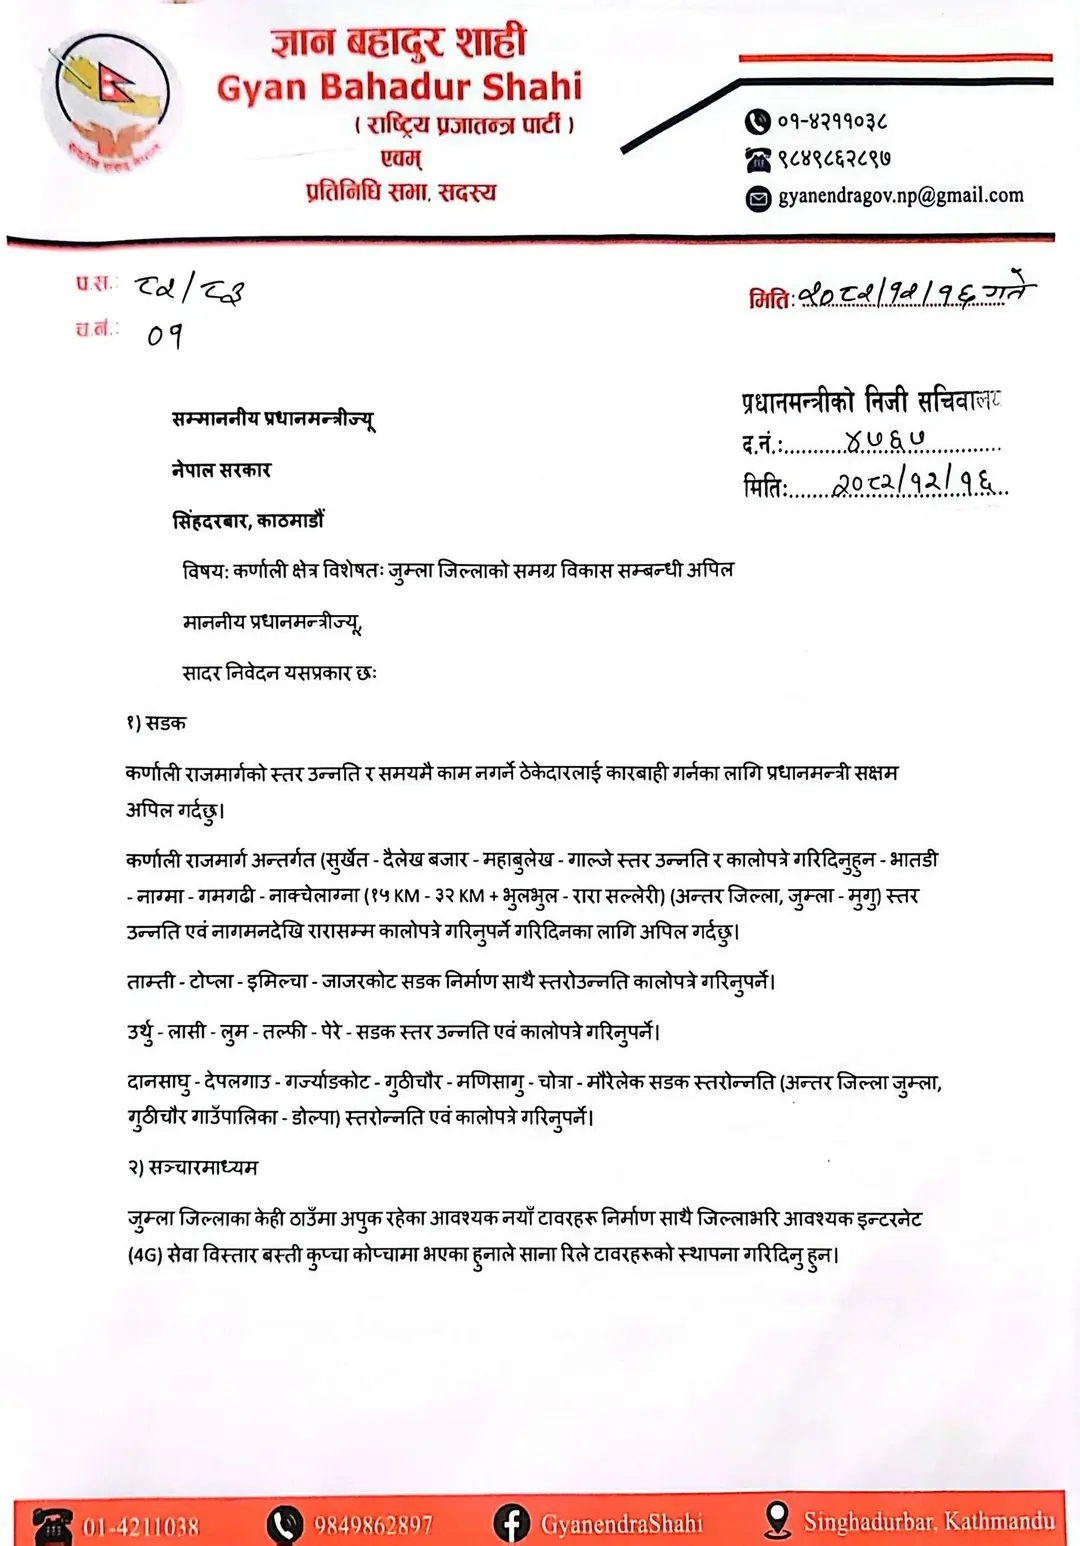 ज्ञान बहादुर शाही
Gyan Bahadur Shahi
( राष्ट्रिय प्रजातन्त्र पार्टी )
एवम्
प्रतिनिधि सभा, सदस्य
०१-४२११०३८
९८४९८६२८९७
gyanendragov.np@gmail.com
प.स.: ८२/८३
च.नं.: ०१
मिति: २०८२/१२/१६ गते
सम्माननीय प्रधानमन्त्रीज्यू
नेपाल सरकार
सिंहदरबार, काठमाडौं
प्रधानमन्त्रीको निजी सचिवालय
द.नं.:.........४७६७..............
मिति:.......२०८२/१२/१६..
विषय: कर्णाली क्षेत्र विशेषतः जुम्ला जिल्लाको समग्र विकास सम्बन्धी अपिल
माननीय प्रधानमन्त्रीज्यू,
सादर निवेदन यसप्रकार छः
१) सडक
कर्णाली राजमार्गको स्तर उन्नति र समयमै काम नगर्ने ठेकेदारलाई कारबाही गर्नका लागि प्रधानमन्त्री सक्षम
अपिल गर्दछु।
कर्णाली राजमार्ग अन्तर्गत (सुर्खेत - दैलेख बजार - महाबुलेख - गाल्जे स्तर उन्नति र कालोपत्रे गरिदिनुहुन - भातडी
- नाग्मा - गमगढी - नाक्चेलाग्ना (१५ KM - ३२ KM + भुलभुल - रारा सल्लेरी) (अन्तर जिल्ला, जुम्ला - मुगु) स्तर
उन्नति एवं नागमनदेखि रारासम्म कालोपत्रे गरिनुपर्ने गरिदिनका लागि अपिल गर्दछु।
ताम्ती - टोप्ला - इमिल्चा - जाजरकोट सडक निर्माण साथै स्तरोउन्नति कालोपत्रे गरिनुपर्ने।
उर्थु - लासी - लुम - तल्फी - पेरे - सडक स्तर उन्नति एवं कालोपत्रे गरिनुपर्ने।
दानसाघु - देपलगाउ - गर्ज्याङकोट - गुठीचौर - मणिसागु - चोत्रा - मौरेलेक सडक स्तरोन्नति (अन्तर जिल्ला जुम्ला,
गुठीचौर गाउँपालिका - डोल्पा) स्तरोन्नति एवं कालोपत्रे गरिनुपर्ने।
२) सञ्चारमाध्यम
जुम्ला जिल्लाका केही ठाउँमा अपुक रहेका आवश्यक नयाँ टावरहरू निर्माण साथै जिल्लाभरि आवश्यक इन्टरनेट
(4G) सेवा विस्तार बस्ती कुप्चा कोप्चामा भएका हुनाले साना रिले टावरहरूको स्थापना गरिदिनु हुन।
01-4211038
9849862897
GyanendraShahi
Singhadurbar, Kathmandu